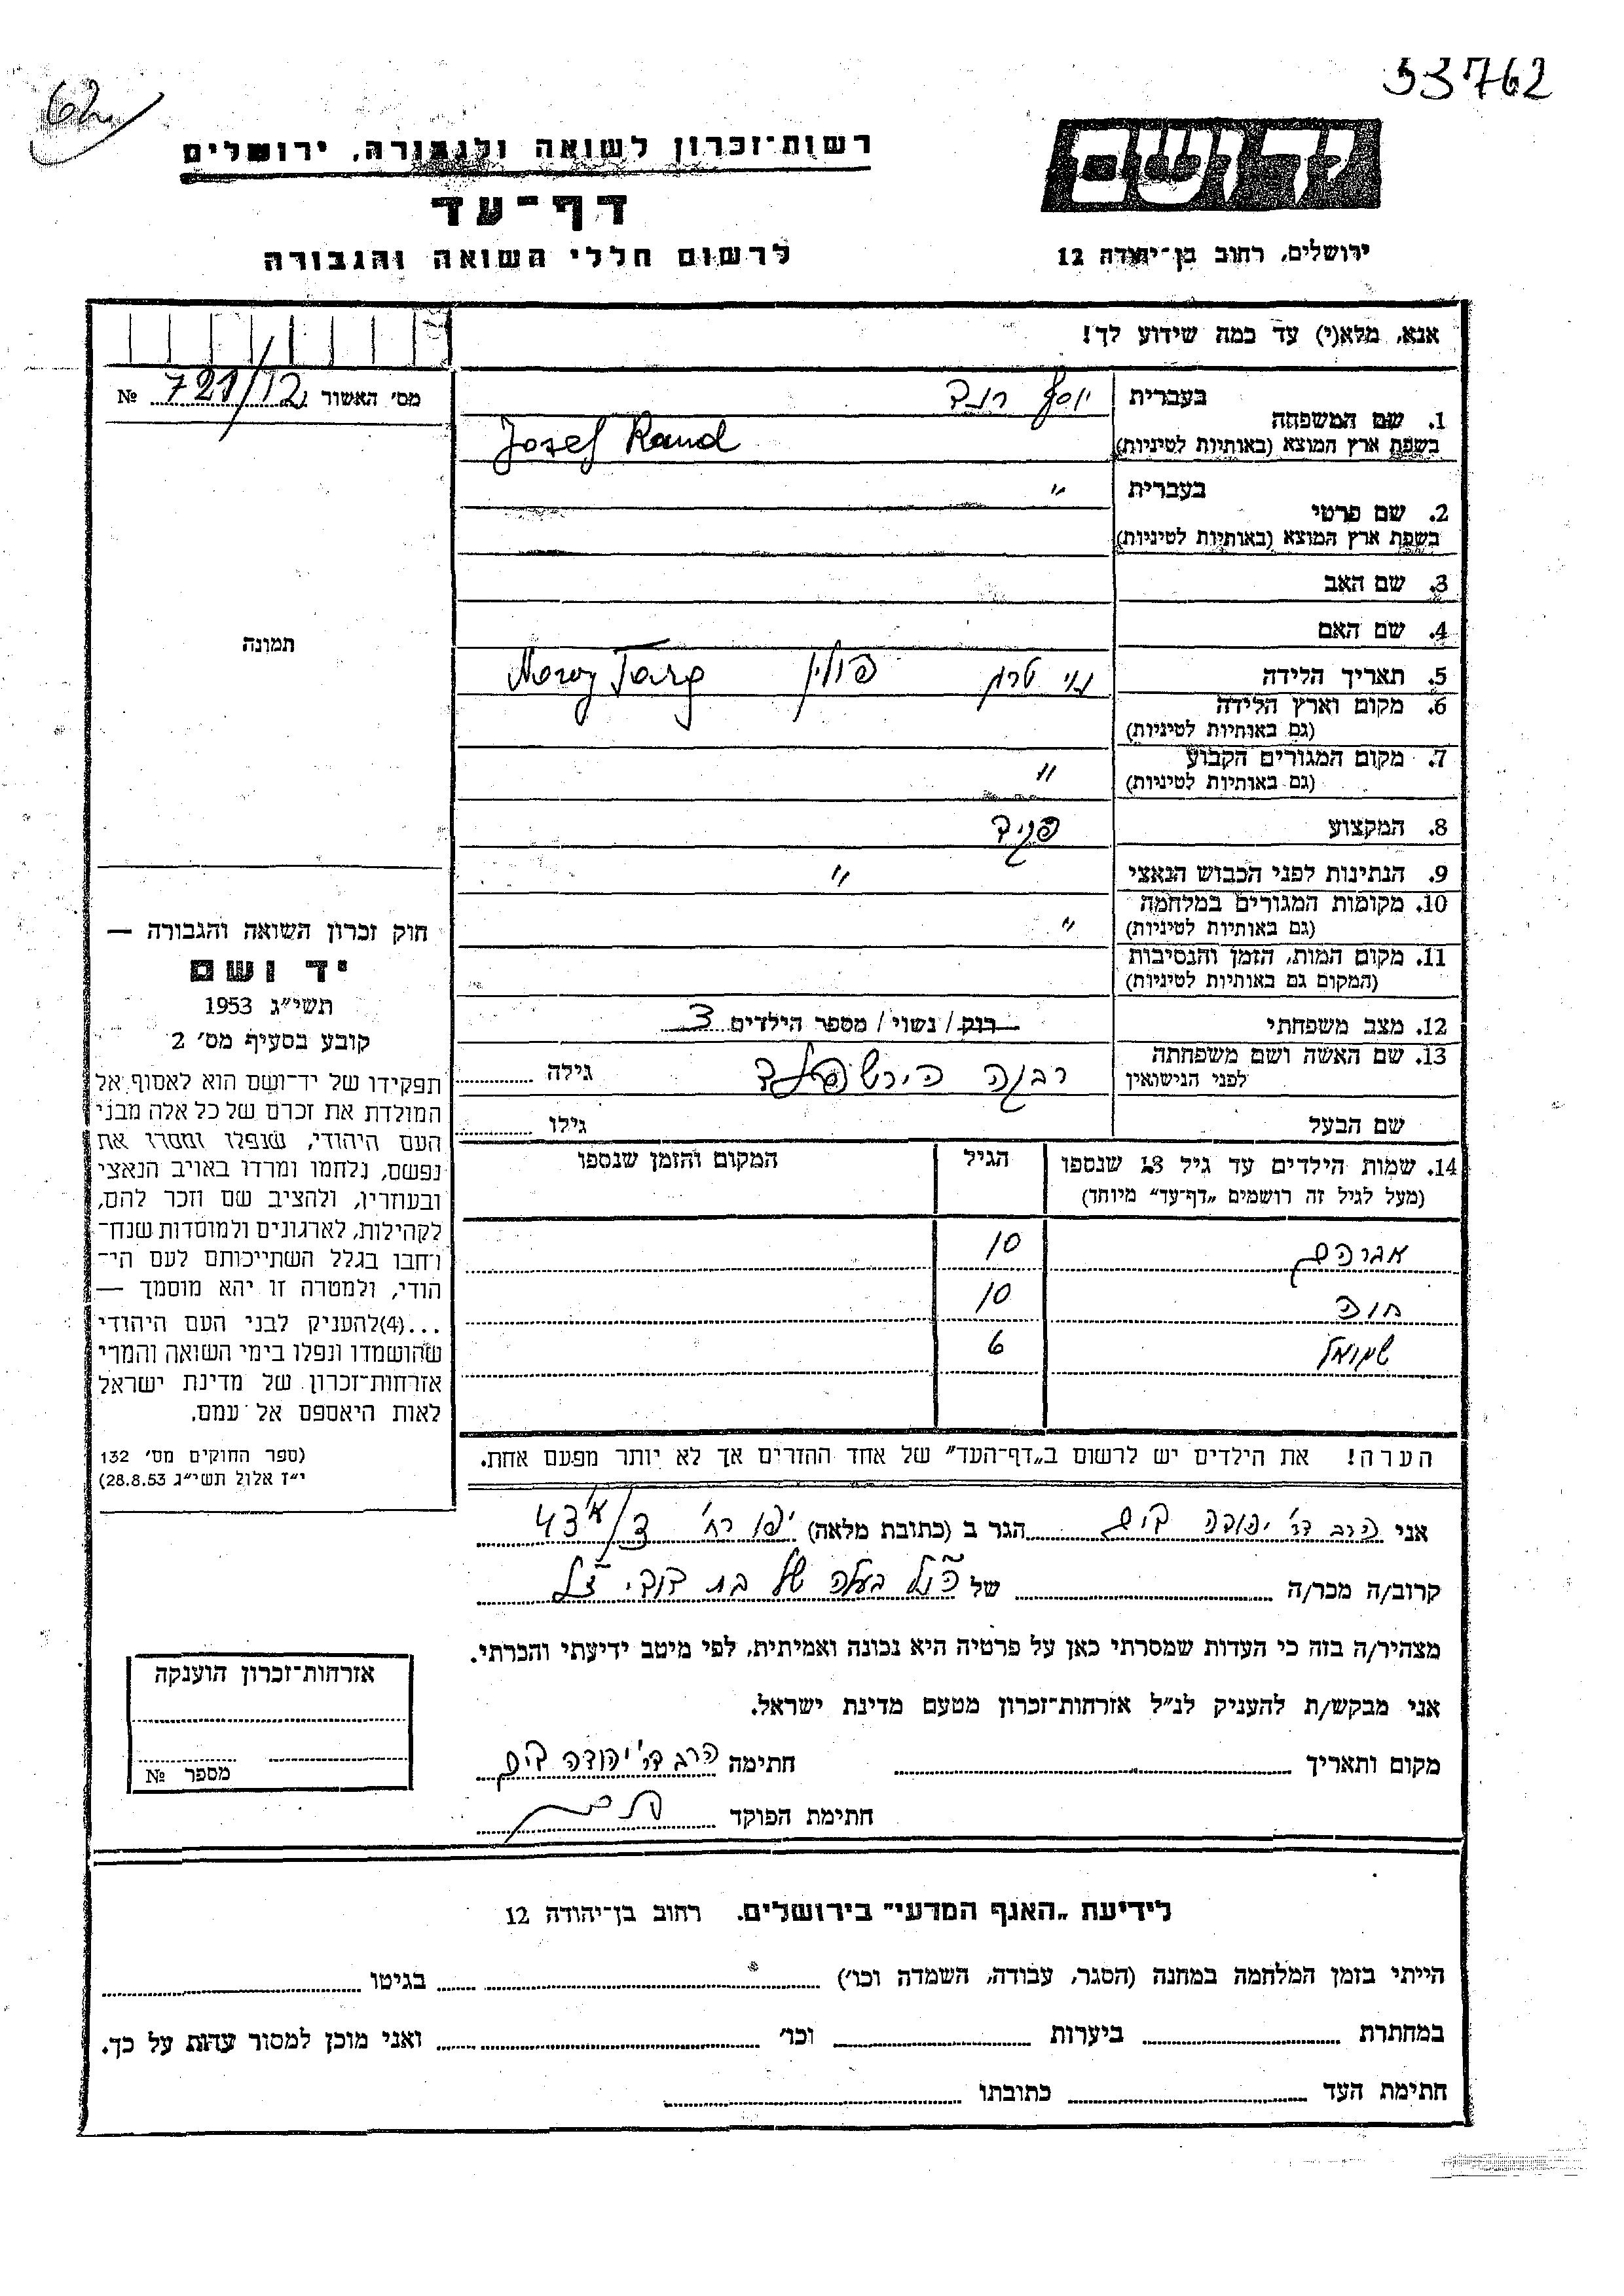 53762
62
יד ושם
רשות־זכרון לשואה ולגבורה, ירושלים
דף־עד
לרשום חללי השואה והגבורה
ירושלים, רחוב בן־יהודה 12
אנא, מלא(י) עד כמה שידוע לך!
מס׳ האשור 721/12 №
בעברית יוסף רנד
1. שם המשפחה
בשפת ארץ המוצא (באותיות לטיניות) Josef Rand
בעברית "
2. שם פרטי
בשפת ארץ המוצא (באותיות לטיניות)
3. שם האב
4. שם האם
תמונה
5. תאריך הלידה נוי טרג פולין Nowy Targ
6. מקום וארץ הלידה
(גם באותיות לטיניות)
7. מקום המגורים הקבוע
(גם באותיות לטיניות) "
8. המקצוע
9. הנתינות לפני הכבוש הנאצי "
10. מקומות המגורים במלחמה
(גם באותיות לטיניות) "
11. מקום המות, הזמן והנסיבות
(המקום גם באותיות לטיניות)
12. מצב משפחתי רווק / נשוי / מספר הילדים 3
13. שם האשה ושם משפחתה
לפני הנישואין הירשפלד גילה
שם הבעל גילו
14. שמות הילדים עד גיל 18 שנספו הגיל המקום והזמן שנספו
(מעל לגיל זה רושמים „דף־עד״ מיוחד)
אברהם 10
חוה 10
שמואל 6
הערה! את הילדים יש לרשום ב„דף־העד״ של אחד ההורים אך לא יותר מפעם אחת.
חוק זכרון השואה והגבורה —
יד ושם
תשי״ג 1953
קובע בסעיף מס׳ 2
תפקידו של יד־ושם הוא לאסוף אל
המולדת את זכרם של כל אלה מבני
העם היהודי, שנפלו ומסרו את
נפשם, נלחמו ומרדו באויב הנאצי
ובעוזריו, ולהציב שם וזכר להם,
לקהילות, לארגונים ולמוסדות שנח־
רחבו בגלל השתייכותם לעם הי־
הודי, ולמטרה זו יהא מוסמך —
...(4)להעניק לבני העם היהודי
שהושמדו ונפלו בימי השואה והמרי
אזרחות־זכרון של מדינת ישראל
לאות היאספם אל עמם.
(ספר החוקים מס׳ 132
י״ז אלול תשי״ג 28.8.53)
אני הרב דר׳ יהודה הגר ב (כתובת מלאה) יפו רח׳ 3/א׳ 43
קרוב/ה מכר/ה של הנ״ל בעלה של בת דודי ז״ל
מצהיר/ה בזה כי העדות שמסרתי כאן על פרטיה היא נכונה ואמיתית, לפי מיטב ידיעתי והכרתי.
אני מבקש/ת להעניק לנ״ל אזרחות־זכרון מטעם מדינת ישראל.
מקום ותאריך חתימה הרב דר׳ יהודה
חתימת הפוקד
אזרחות־זכרון הוענקה
מספר №
לידיעת „האגף המדעי״ בירושלים. רחוב בן־יהודה 12
הייתי בזמן המלחמה במחנה (הסגר, עבודה, השמדה וכו׳) בגיטו
במחתרת ביערות וכו׳ ואני מוכן למסור עדות על כך.
חתימת העד כתובתו